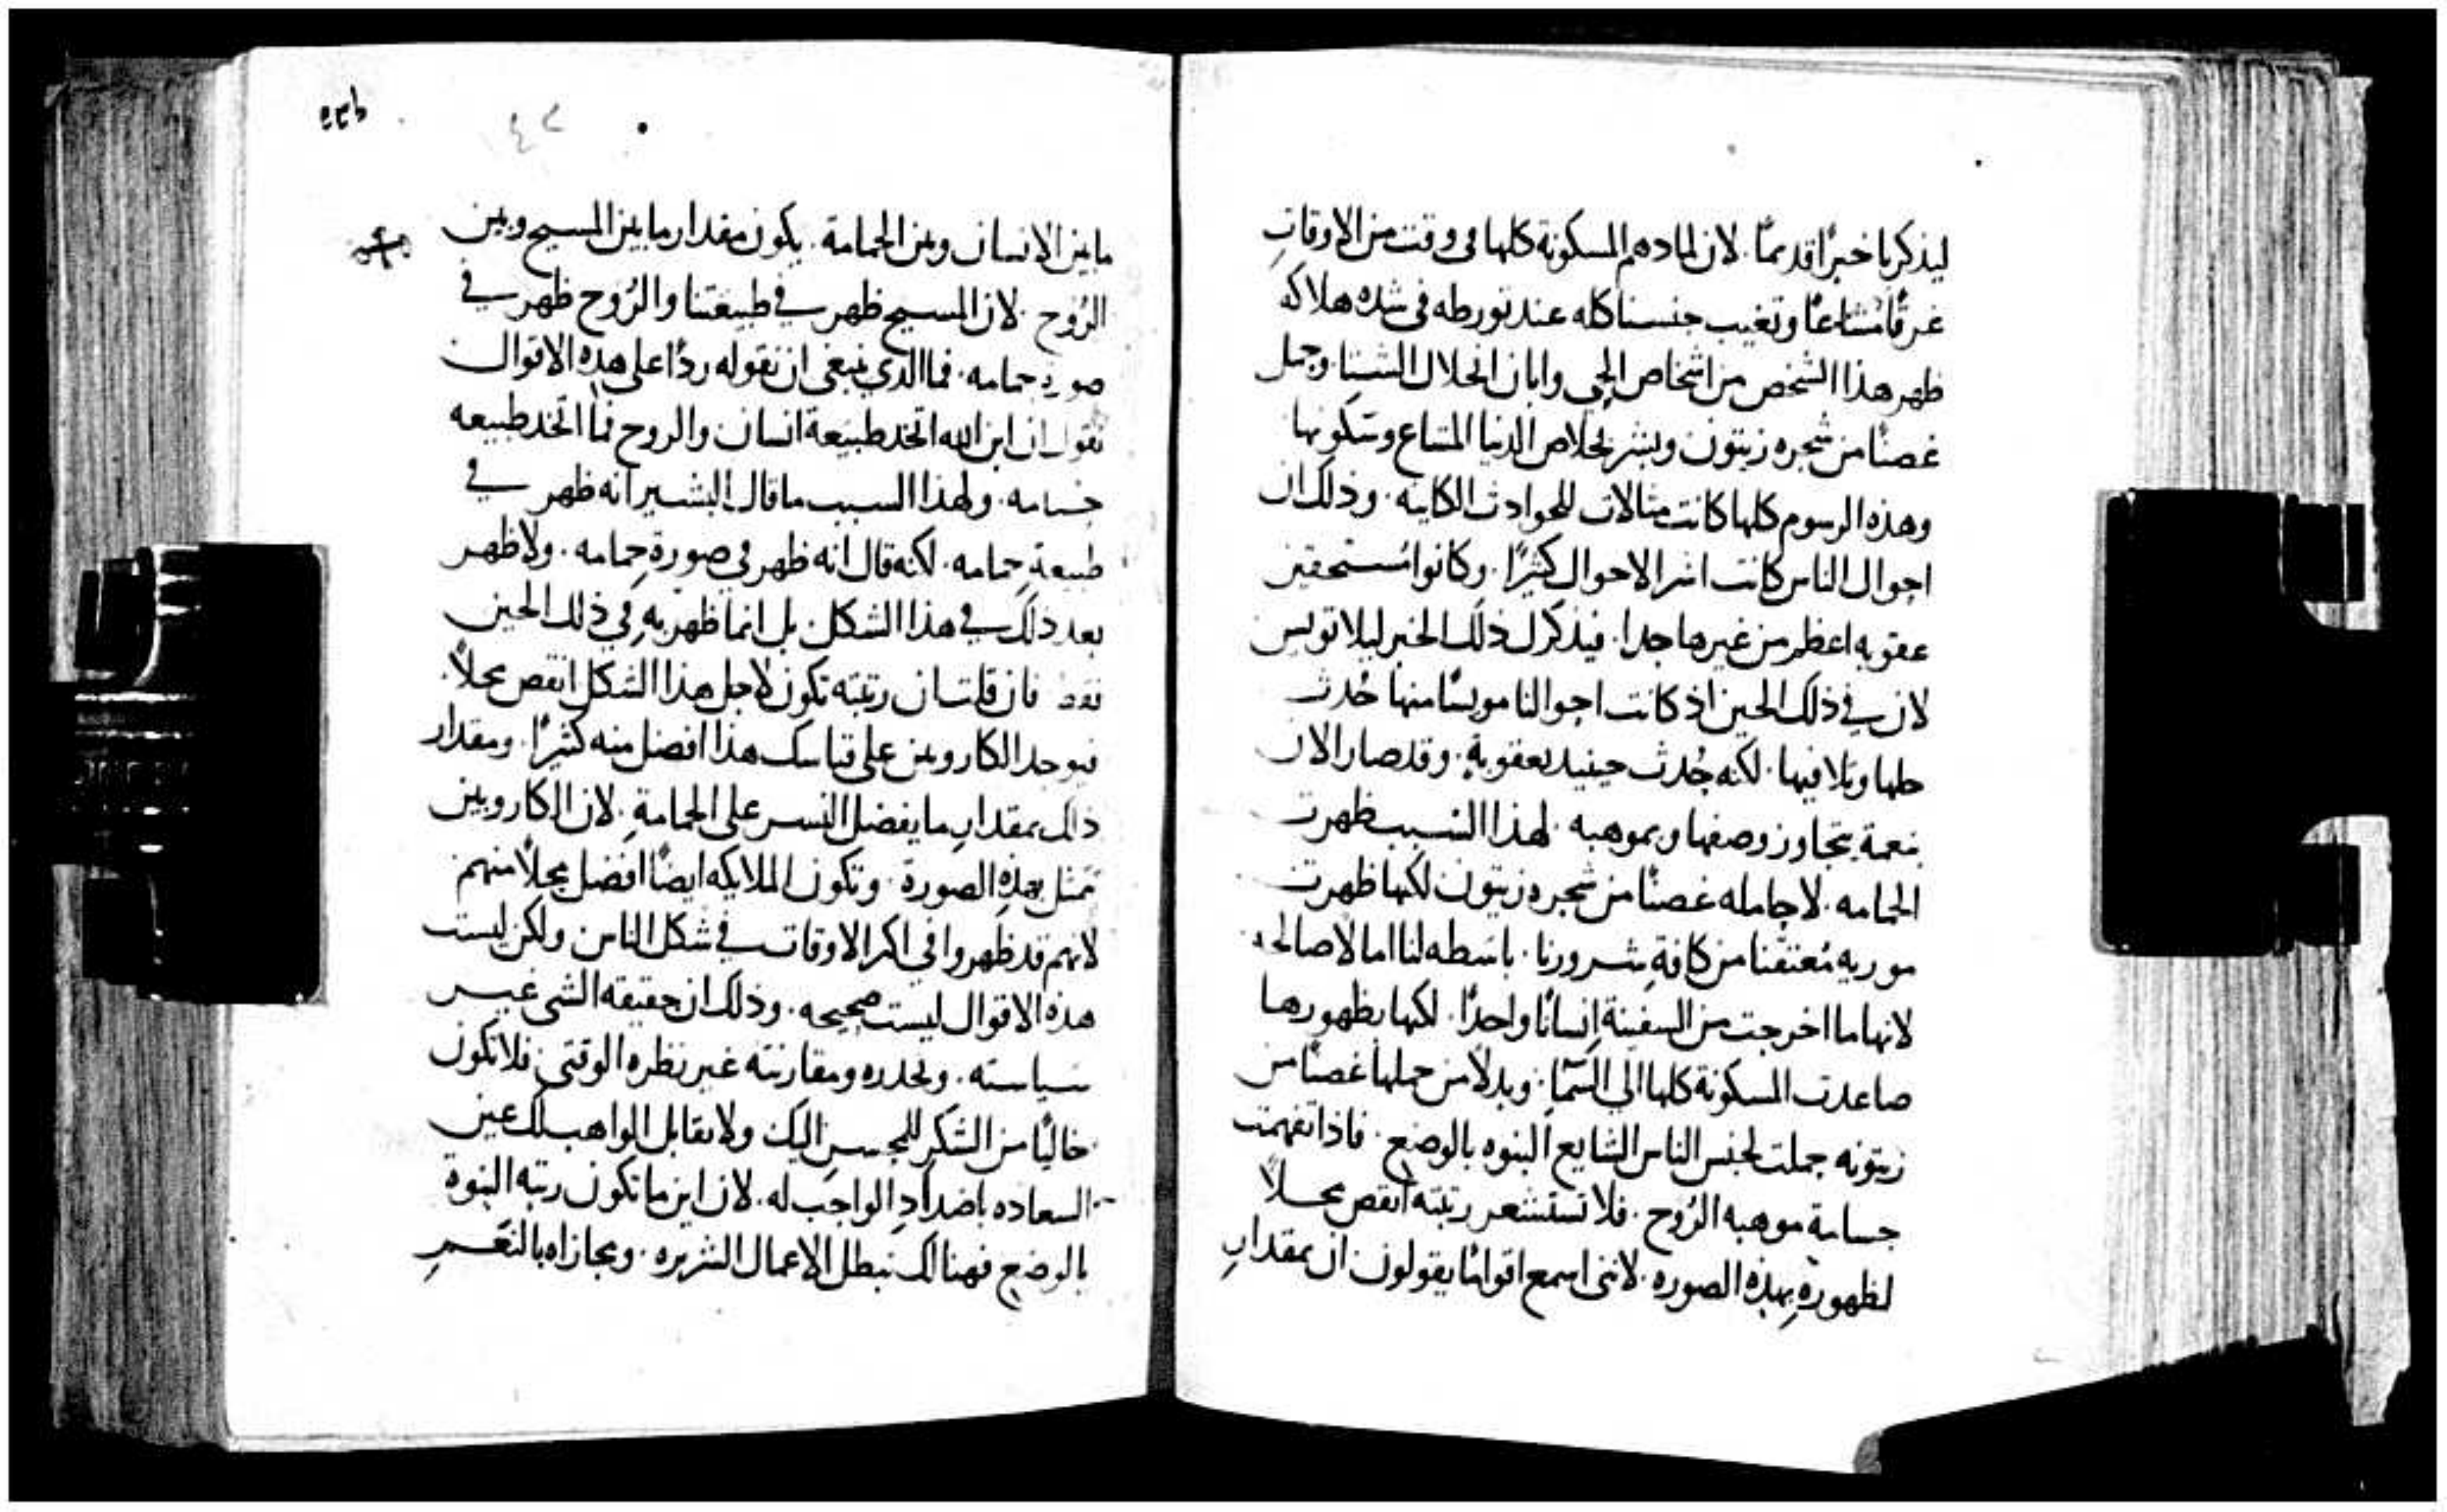 ليذكرنا خبرًا قديمًا. لان لما دهم المسكونة كلها في وقت من الاوقات
غرقًا مشاعًا وتغيب جنسنا كله عند تورطه في شده هلاكه
ظهر هذا الشخص من اشخاص الحي وابان انحلال الشتا. وحمل
غصنًا من شجره زيتون وبشر بخلاص الدنيا المشاع وسكونها
وهذه الرسوم كلها كانت مثالات للحوادث الكاينه. وذلك ان
احوال الناس كانت اشر الاحوال كثيرًا. وكانوا مستحقين
عقوبه اعظم من غيرها جدا. فيذكرك ذلك الخبر ليلا تويس
لان في ذلك الحين اذ كانت احوالنا مويسًا منها حُدث
حلها وتلافيها. لكنه حُدث حينيد بعقوبةٍ. وقد صار الان
بنعمة يتجاوز وصفها وبموهبه. لهذا السبب ظهرت
الحمامه. لا حامله غصنًا من شجره زيتون لكنها ظهرت
موريه مُعتقنا من كافةِ شرورنا. باسطه لنا امالًا صالحه
لانها ما اخرجت من السفينة اِنسانًا واحدًا. لكنها بظهورها
صاعدت المسكونة كلها الي السمآ. وبدلًا من حملها غصنًا من
زيتونه حملت لجنس الناس الشايع البنوه بالوضع. فاذا تفهمت
جسامة موهبه الرُوح. فلا تستشعر رتبته انقص محلًا
لظهورهِ بهذه الصوره. لانني اسمع اقوامًا يقولون ان بمقدارِ
٤٢
مابين الانسان وبين الحمامة. يكون مقدار مابين المسيح وبين
الرُوح. لان المسيح ظهر في طبيعتنا والرُوح ظهر في
صورة حمامه. فما الدي ينبغي ان نقوله ردًا على هذه الاقوال
نقول ان ابن الله اتخد طبيعة انسان والروح فما اتخد طبيعه
حمامه. ولهذا السبب ما قال البشير انه ظهر في
طبيعةِ حمامه. لكنه قال انه ظهر في صورةِ حمامه. ولا ظهر
بعد ذلك في هذا الشكل. بل انما ظهر به في ذلك الحين
فقط فان قلت ان رتبته تكون لاجل هذا الشكل انقص محلًا.
فيوجد الكاروبين على قياسك هذا افضل منه كثيرًا. ومقدار
ذلك بمقدارِ ما يفضل النسر على الحمامةِ. لان الكاروبين
تمثل بهذهِ الصورة. وتكون الملايكه ايضًا افضل محلًا منهم
لانهم قد ظهروا في اكثر الاوقات في شكل الناس ولكن ليست
هذه الاقوال ليست صحيحه. وذلك ان حقيقه الشي غير
سياسته. وتحدده ومقارنته غير نظره الوقتي فلا تكون
خاليًا من الشكرِ للمحسن اليك ولا تقابل الواهب لك عين
السعاده باضدادِ الواجب له. لان اين ما تكون رتبه البنوة
بالوضع فهنالك تبطل الاعمال الشريره. ومجازاه بالنعم